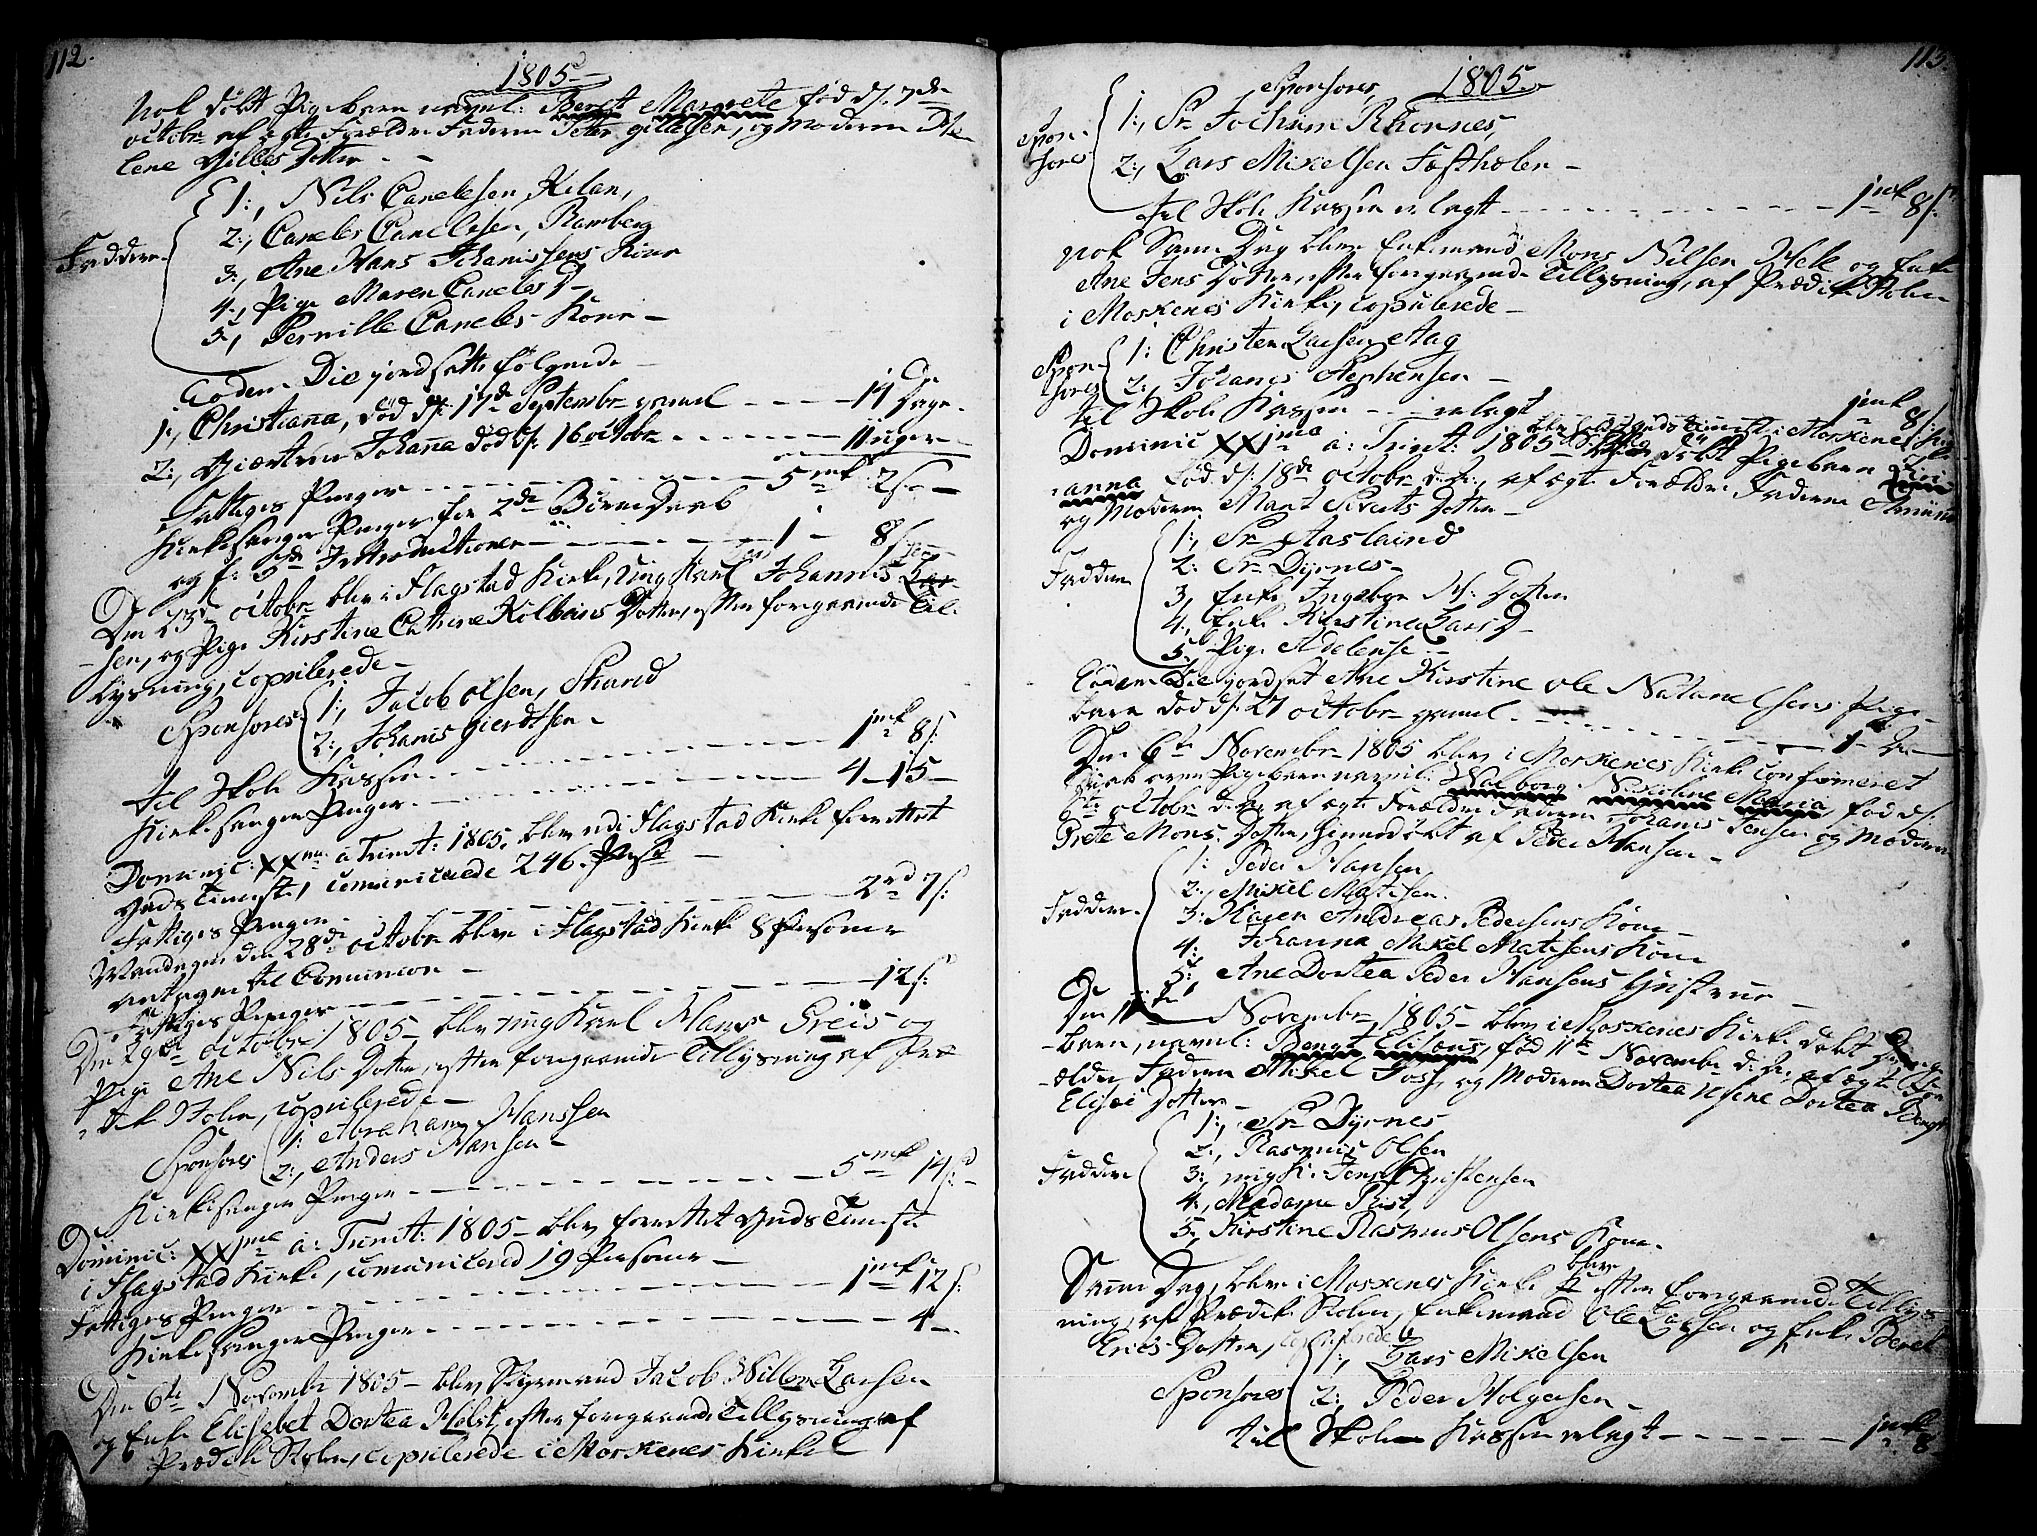 112.
1805
Nok døbt Pigebarn navnl: Berit Margrete fød d: 7de
octobr af ægte Forældre Faderen Peter gillesen, og Moderen
lene Gilles Dotter
1:, Nils Canelesen Kilan,
2:, Caneles Canelesen, Ramberg
3:, Ane Hans Johanissens Kone
4:, Pige Maren Caneles D
5:, Pernille Caneles Kone
Faddere
Eodem Die jordsatte følgende
1:, Christiana, død d: 17de Septembr gamel 14 Dage
2:, Giertrue Johanna død d: 16 octobr 11 uger
Fattiges Penger 5 mk 2 s
Kirkesanger Penger for 2de Børne Daab
og f: 5de Introductioner 1 - 8 s
Den 23de octobr blev i Flagstad Kirke, Ung Karl Johannes
sen, og Pige Kirstine Catrine Kolbens Dotter, efter foregaaende Til-
lysning, copulerede
Sponsores 1:, Jacob olsen, Strand
2:, Johanis gierdtsen
til Skole Kassen 1 mk 8 s:
Kirkesanger Penger 4 - 15
Dominic: XXma à Trinit: 1805, blev udi Flagstad Kirke forrettet
Guds Tieneste, comunicerede 246. Pers:
Fattiges Penger 2 rd 7 s:
Mandagen den 28de octobr blev i Flagstad Kirke 8 Personer
antagen til Comunion
Fattiges Penger 12 s:
Den 29de octobr 1805 blev ung Karl Hans Greis og
Pige Ane Nils Dotter, efter foregaaende Tillysning af Præ-
dike Stolen, copulerede
Sponsores 1: Abraham Hanssen
2:, Anders Hansen
Kirkesanger Penger 5 mk 14 s:
Dominic: XXIma à: Trinit: 1805 blev forrettet Guds Tieneste
i Flagstad Kirke, comunicered 19 Personer
Fattiges Penger 1 mk 12 s:
Kirkesanger Penger 4
Den 6te Novembr 1805 blev Styrmand Jacob Willem Larsen
og Enke Elisebet Dortea Holst, efter foregaaende Tillysning af
Prædike Stolen, copulerede i Moskenes Kirke
113.
1805.
Sponsores,
Sponsores
1:, Sr Jochum Rhonnes,
2:, Lars Mikelsen
til Skole Kassen erlagt 1 mk 8 s:
nok Samme Dag blev Enkemand Mons Nilsen og Enke
Ane Jens Dotter, efter foregaaende Tillysning, af Prædike Stolen
i Moskenes Kirke, copulerede
Sponsores
1: Christen Larsen Aag
2:, Johanes Stephensen
til Skole Kassen erlagt 1 mk 8 s:
Dominic XXIma à: Trinit: 1805 blev holdt Guds Tieneste i Moskenes Kirke
døbt Pigebarn
anna fød d: 18de octobr d: A:, af ægte Forældre Faderen
og Moderen Marit Siverts Dotter
Faddere
1:, Sr Aaslaind
2: Sr Dyrnes
3, Enke Ingebor Dotter
4., Enke Kirstine Lars D
5. Pige Adelense
Eodem Die jordsat Ane Kirstine ole Natanelsens Pige-
barn død d: 27 octobr gamel
Den 6te Novembr 1805 blev i Moskenes Kirke confirmeret
Pigebarn navnl: Walborg Nicoline Maria, fød d:
octobr d: A: af ægte Forældre Faderen Johanis Jensen og Moderen
Grete Mons Dotter, hiemedøbt af Peder Hansen
Faddere
1: Peder Hansen,
2:, Mikel Matisen
3: Karen Andreas Pedersens Kone
4: Johanna Mikel Matisens Kone
5:, Ane Dortea Peder Hansens Hustrue
Den Novembr 1805 blev i Moskenes Kirke døbt Drenge
barn, navnl: Bengt Elisæus, fød 11te Novembr d: A:, af ægte For-
ældre, Faderen Mikel Foss, og Moderen Dortea Bengt
Elisei Dotter
Faddere
1:, Sr Dyrnes
2:, Rasmus Olsen
3: ung K: Jens Christensen
4., Madame Rist
5., Kirstine Rasmus Olsens Kone.
Samme Dag, blev i Moskenes Kirke blev efter foregaaende Tillys-
ning, af Prædike Stolen, Enkemand Ole Larsen og Enke Beret
Erics Dotter, copulerede
Sponsores 1:, Lars Mikelsen
2:, Peder Holgersen
til Skole Kassen erlagt 1 mk 8